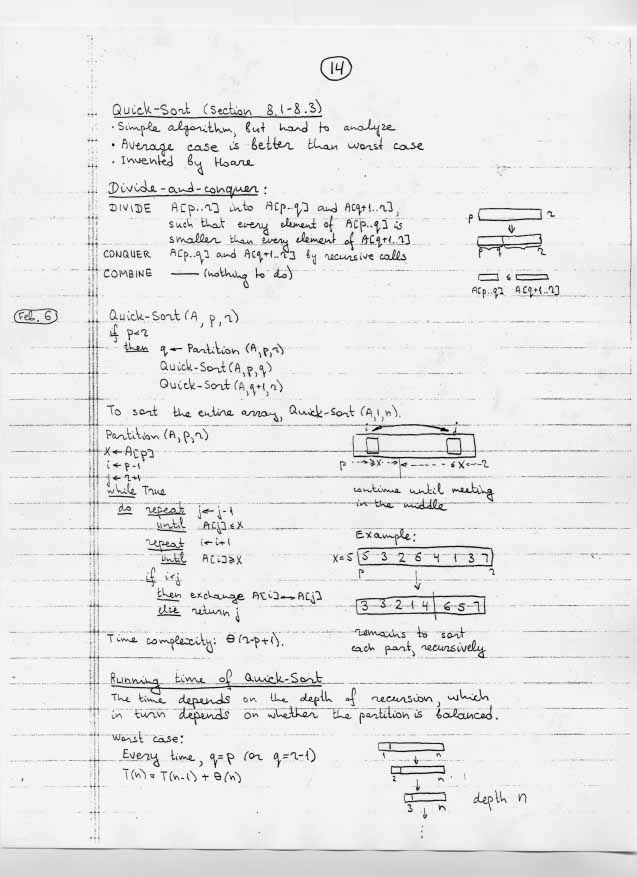 14
Quick-Sort (Section 8.1-8.3)
· Simple algorithm, but hard to analyze
• Average case is better than worst case
. Invented by Hoare
Divide-and-conquer:
DIVIDE A[p..r] into A[p..q] and A[q+1..r],
such that every element of A[p..q] is
smaller than every element of A[q+1..r]
CONQUER A[p..q] and A[q+1..r] by recursive calls
COMBINE —— (nothing to do)
p r
p q r
≤
A[p..q] A[q+1..r]
Feb. 6
Quick-Sort (A, p, r)
if p<r
then q ← Partition (A,p,r)
Quick-Sort (A,p,q)
Quick-Sort (A,q+1,r)
To sort the entire array, Quick-Sort (A,1,n).
Partition (A,p,r)
X ← A[p]
i ← p-1
j ← r+1
while True
do repeat j ← j-1
until A[j] ≤ X
repeat i ← i+1
until A[i] ≥ X
if i<j
then exchange A[i] ↔ A[j]
else return j
Time complexity: Θ(r-p+1).
i j
continue until meeting
in the middle
Example:
X=5 5 3 2 6 4 1 3 7
p r
3 3 2 1 4 6 5 7
remains to sort
each part, recursively
Running time of Quick-Sort
The time depends on the depth of recursion, which
in turn depends on whether the partition is balanced.
Worst case:
Every time, q=p (or q=r-1)
T(n) = T(n-1) + Θ(n)
1 n
2 n
3 n
depth n